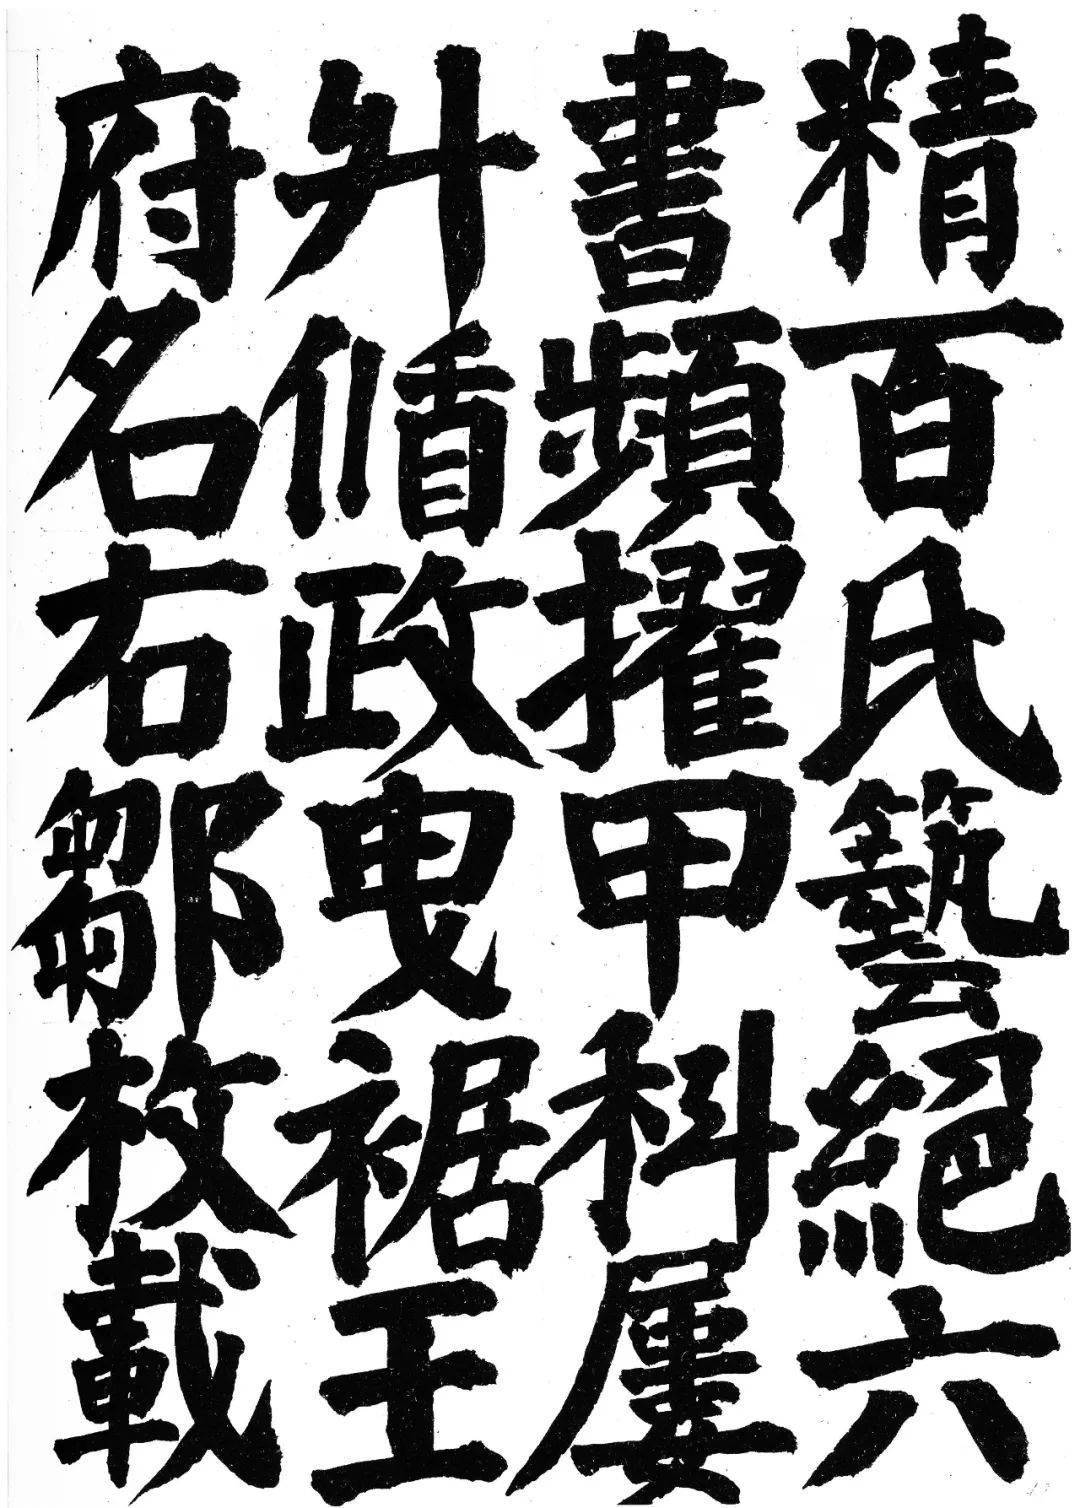 精百氏藝絕六
書頻擢甲科屢
升循政曳裾王
府名右鄒枚載